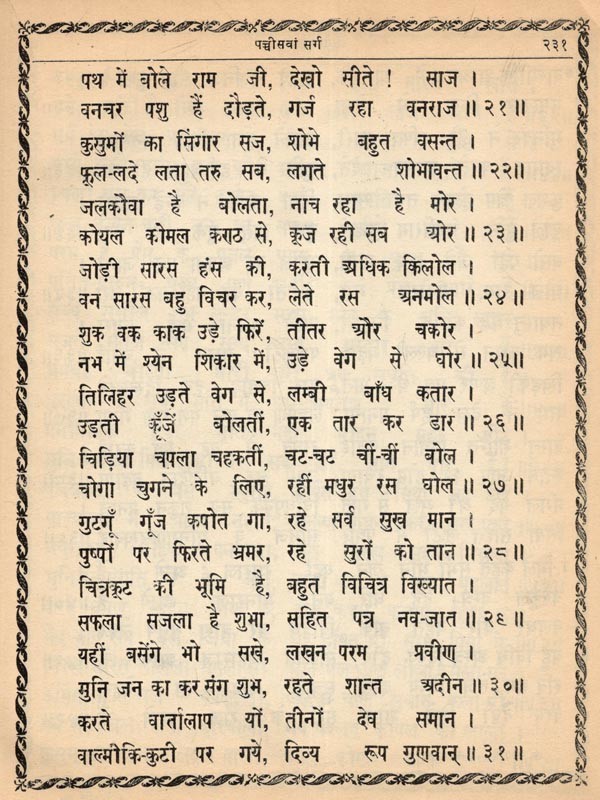 पच्चीसवां सर्ग २३१
पथ में बोले राम जी, देखो सीते ! साज ।
वनचर पशु हैं दौड़ते, गर्ज रहा वनराज ॥२१॥
कुसुमों का सिंगार सज, शोभे बहुत वसन्त ।
फूल-लदे लता तरु सब, लगते शोभावन्त ॥२२॥
जलकौवा है बोलता, नाच रहा है मोर ।
कोयल कोमल कण्ठ से, कूज रही सब ओर ॥२३॥
जोड़ी सारस हंस की, करती अधिक किलोल ।
वन सारस बहु विचर कर, लेते रस अनमोल ॥२४॥
शुक वक काक उड़े फिरें, तीतर और चकोर ।
नभ में श्येन शिकार में, उड़े वेग से घोर ॥२५॥
तिलिहर उड़ते वेग से, लम्बी बाँध कतार ।
उड़ती कूँजें बोलतीं, एक तार कर डार ॥२६॥
चिड़िया चपला चहकतीं, चट-चट चीं-चीं बोल ।
चोगा चुगने के लिए, रहीं मधुर रस घोल ॥२७॥
गुटगूँ गूँज कपोत गा, रहे सर्व सुख मान ।
पुष्पों पर फिरते भ्रमर, रहे सुरों को तान ॥२८॥
चित्रकूट की भूमि है, बहुत विचित्र विख्यात ।
सफला सजला है शुभा, सहित पत्र नव-जात ॥२९॥
यहीं बसेंगे भो सखे, लखन परम प्रवीण ।
मुनि जन का कर संग शुभ, रहते शान्त अदीन ॥३०॥
करते वार्तालाप यों, तीनों देव समान ।
वाल्मीकि-कुटी पर गये, दिव्य रूप गुणवान् ॥३१॥